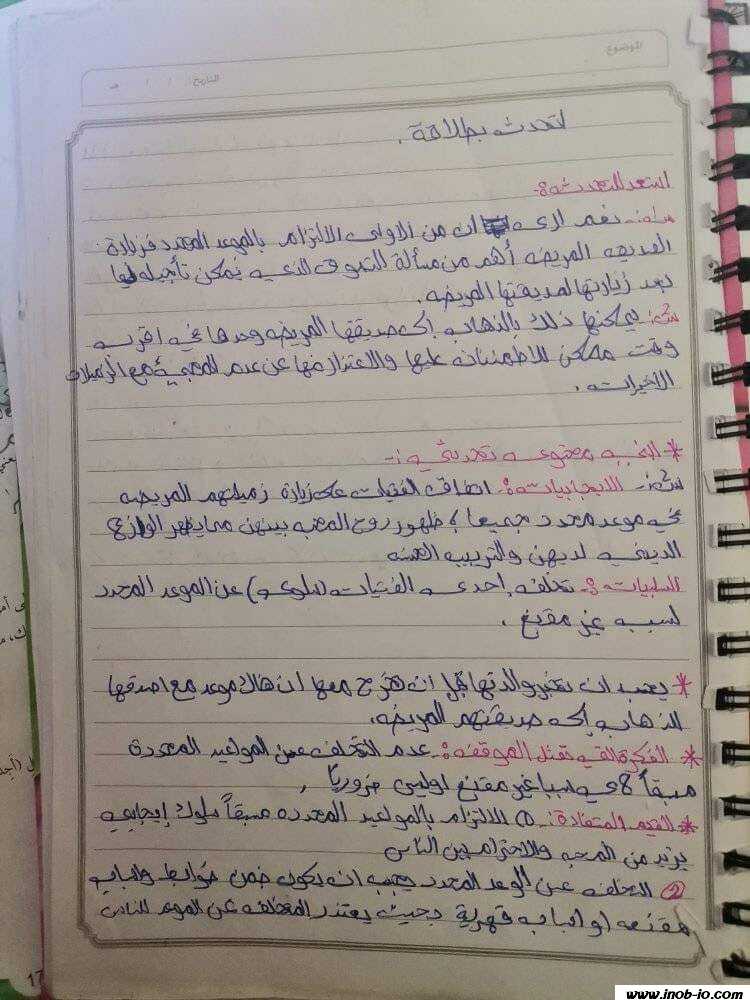 الموضوع
التاريخ / / هـ
لتحدث بطلاقة .
استعد للتحدث :-
س١:- نعم ارى ان من الاولى الالتزام بالموعد المحدد فزيارة
الصديقه المريضه أهم من مسألة التسوق الذي يمكن تأجيله لما
بعد زيارتها لصديقتها المريضه.
س٢:- يمكنها ذلك بالذهاب إلى صديقتها المريضه وحدها في اقرب
وقت ممكن للاطمئنان عليها والاعتذار لها عن عدم المجيئ مع الزميلات
الاخريات .
* ابني محتوى تحدثي :-
س١:- الايجابيات :- اتفاق الفتيات على زيارة زميلتهم المريضه
في موعد محدد جميعا لظهور روح المحبه بينهن مما يظهر الوازع
الديني لديهن والتربيه الحسنه
السلبيات :- تخلف إحدى الفتيات (سلوى) عن الموعد المحدد
لسبب غير مقنع .
* يجب ان تخبر والدتها قبل ان تخرج معها ان هناك موعد مع اصدقها
الذهاب إلى صديقتهم المريضه.
* الفكرة التي تمثل الموقف :- عدم التخلف عن المواعيد المحددة
مسبقاً لسبب غير مقنع اوليس ضرورياً .
* القيم المستفادة :- ① الالتزام بالمواعيد المحدده مسبقاً سلوك إيجابي
يزيد من المحبه والاحترام بين الناس
② التخلف عن الوعد المحدد يجب ان يكون ضمن ضوابط واسباب
مقنعه او اسباب قهرية بحيث يعتذر المتخلف عن الموعد للناس
17
www.inob-io.com